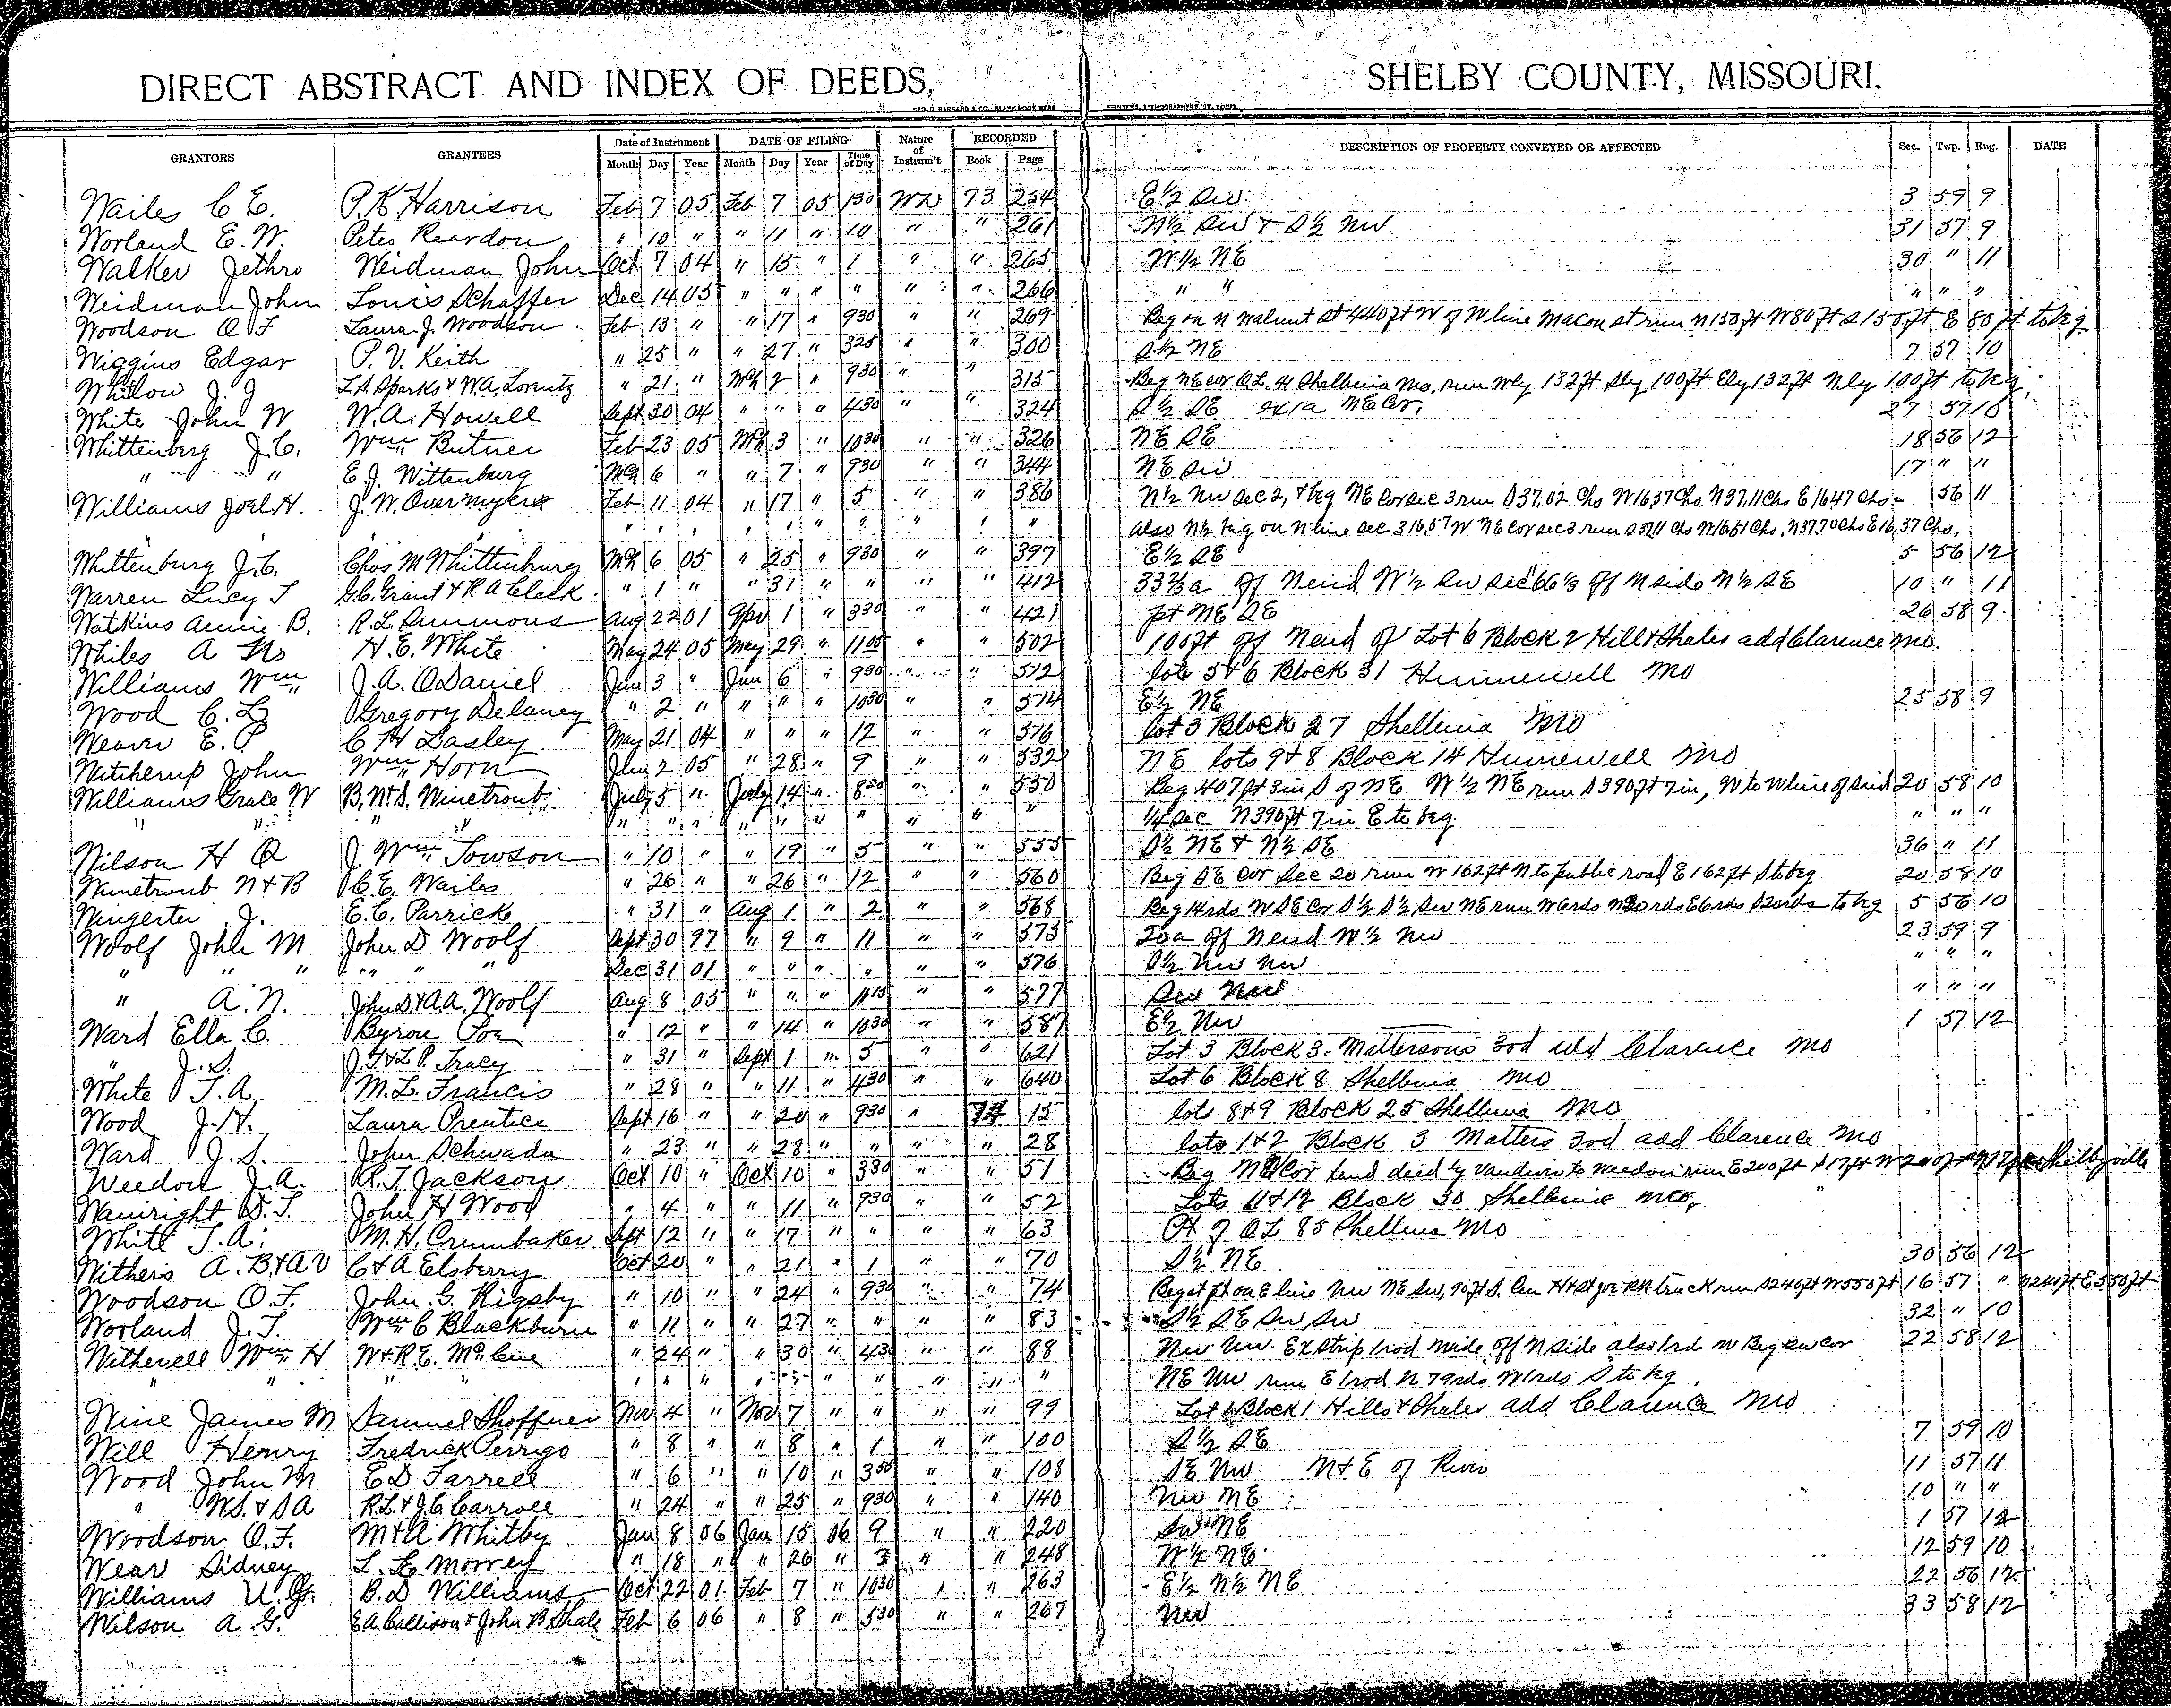 DIRECT ABSTRACT AND INDEX OF DEEDS, SHELBY COUNTY, MISSOURI.
GEO. D. BARNARD & CO. BLANK BOOK MFRS. PRINTERS, LITHOGRAPHERS, ST. LOUIS.
GRANTORS GRANTEES Date of Instrument DATE OF FILING Nature of Instrum't RECORDED DESCRIPTION OF PROPERTY CONVEYED OR AFFECTED Sec. Twp. Rng. DATE
Month Day Year Month Day Year Time of Day Book Page
Wailes C E. P. K Harrison Feb 7 05 Feb 7 05 130 WD 73 254 E½ Sw 3 59 9
Worland E. W. Petes Reardon " 10 " " 11 " 10 " " 261 N½ Sw & S½ Nw 31 57 9
Walker Jethro Weidman John Oct 7 04 " 15 " 1 " " 265 W½ NE 30 " 11
Weidman John Louis Schaffer Dec 14 05 " " " " " " 266 " " " " "
Woodson O F Laura J. Woodson Feb 13 " " 17 " 930 " " 269 Beg on N Walnut St 440 ft W of W line Macon St run N 150 ft W 80 ft S 150 ft E 80 ft to beg
Wiggins Edgar P. V. Keith " 25 " " 27 " 325 " " 300 S½ NE 7 57 10
Whitlow J. J L. A. Sparks & W. A. Lorentz " 21 " Mch 2 " 930 " " 315 Beg NE cor OL. 41 Shelbina Mo, run Wly 132 ft Sly 100 ft Ely 132 ft Nly 100 ft to beg
White John W W. A. Howell Sept 30 04 " " " 430 " " 324 S½ SE ex 1a NE Cor. 27 57 10
Whittenberg J. C. Wm Butner Feb 23 05 Mch 3 " 1030 " " 326 NE SE 18 56 12
" " " E. J. Wittenburg Mch 6 " " 7 " 930 " " 344 NE Sw 17 " "
Williams Joel H. J. W. Overmyer Feb 11 04 " 17 " 5 " " 386 N½ Nw Sec 2, & beg NE Cor Sec 3 run S 37.02 Chs W 16.57 Chs N 37.11 Chs E 16.47 Chs 56 11
" " " " " " " " " " " also N½ beg on N line Sec 3 16.57 W NE Cor sec 3 run S 37.11 Chs W 16.51 Chs. N 37.70 Chs E 16.37 Chs.
Whittenburg J. C. Chas M Whittenburg Mch 6 05 " 25 " 930 " " 397 E½ SE 5 56 12
Warren Lucy T G. C. Grant & R A Cleek " 1 " " 31 " " " " 412 33⅔ a off N end W½ Sw Sec " 66⅓ off N side N½ SE 10 " 11
Watkins Annie B. R. L. Simmons Aug 22 01 Apr 1 " 330 " " 421 pt NE SE 26 58 9
Whiles A M H. E. White May 24 05 May 29 " 1105 " " 502 100 ft off N end of Lot 6 Block 2 Hill & Shales add Clarence Mo.
Williams Wm J. A. O Daniel Jun 3 " Jun 6 " 930 " " 512 lots 5 & 6 Block 31 Hunnewell Mo
Wood C. L. Gregory Delaney " 2 " " " " 1030 " " 514 E½ NE 25 58 9
Weaver E. P C H Lasley May 21 04 " " " 12 " " 516 lot 3 Block 27 Shelbina Mo
Witcherup John Wm Horn Jun 2 05 " 28 " 9 " " 532 NE lots 9 & 8 Block 14 Hunnewell Mo
Williams Grace W B. N & S. Winetroub July 5 " July 14 " 820 " " 550 Beg 407 ft 3 in S of NE W½ NE run S 390 ft 7 in, W to W line of said 20 58 10
" " " " " " " " " " " " " " ¼ Sec N 390 ft 7 in E to beg. " " "
Wilson H Q J. Wm Towson " 10 " " 19 " 5 " " 555 S½ NE & N½ SE 36 " 11
Winetroub N & B C. E. Wailes " 26 " " 26 " 12 " " 560 Beg SE Cor Sec 20 run W 162 ft N to public road E 162 ft S to beg 20 58 10
Wingerter J. E. C. Parrick " 31 " Aug 1 " 2 " " 568 Beg 14 rds W SE Cor S½ S½ Sw NE run W 6 rds N 20 rds E 6 rds S 20 rds to beg 5 56 10
Woolf John M John D Woolf Sept 30 97 " 9 " 11 " " 575 20 a off N end W½ Nw 23 59 9
" " " " " " " Dec 31 01 " " " " " " 576 S½ Nw Nw " " "
" A. N. John D. & A. A. Woolf Aug 8 05 " " " 1115 " " 577 Sw Nw " " "
Ward Ella C. Byron Poe " 12 " " 14 " 1030 " " 587 E½ Nw 1 57 12
" J. S. J. T. & L P. Tracy " 31 " Sept 1 " 5 " " 621 Lot 3 Block 3 Mattersons 3rd add Clarence Mo
White T. A. M. L. Francis " 28 " " 11 " 430 " " 640 Lot 6 Block 8 Shelbina Mo
Wood J. H. Laura Prentice Sept 16 " " 20 " 930 " 74 15 lots 8 & 9 Block 25 Shelbina Mo
Ward J. S. John Schwada " 23 " " 28 " " " " 28 lots 1 & 2 Block 3 Matters 3rd add Clarence Mo
Weedon J. A. R. T. Jackson Oct 10 " Oct 10 " 330 " " 51 Beg NE Cor land deed by Vandiver to Weedon run E 200 ft S 17 ft W 200 ft N 17 ft Shelbyville
Wainright D. T. John H Wood " 4 " " 11 " 930 " " 52 Lots 11 & 12 Block 30 Shelbina Mo,
White T. A. M. H. Crumbaker Sept 12 " " 17 " " " " 63 Pt of OL 85 Shelbina Mo
Withers A. B. & A V C & A Elsberry Oct 20 " " 21 " 1 " " 70 S½ NE 30 56 12
Woodson O. F. John G. Rigsby " 10 " " 24 " 930 " " 74 Beg at pt on E line Nw NE Sw, 90 ft S. Cen H & St Joe RR track run S 240 ft W 550 ft 16 57 " N 240 ft E 550 ft
Worland J. T. Wm C Blackburn " 11 " " 27 " " " " 83 S½ SE Sw Sw 32 " 10
Witherell Wm H W & R. E. McCue " 24 " " 30 " 430 " " 88 Nw Nw Ex Strip 1 rod wide off N side also 1rd w Beg sw cor 22 58 12
" " " " " " " " " " " " " " NE Nw run E 1 rod N 79 rds W 1 rds S to beg.
Wine James M Samuel Shoffner Nov 4 " Nov 7 " " " " 99 Lot 1 Block 1 Hills & Shales add Clarence Mo
Will Henry Fredrick Perrigo " 8 " " 8 " 1 " " 100 S½ SE 7 59 10
Wood John M E D Farrell " 6 " " 10 " 355 " " 108 SE Nw N & E of River 11 57 11
" W. S. & S A R. L. & J. C. Carroll " 24 " " 25 " 930 " " 140 Nw NE 10 " "
Woodson O. F. M & A Whitby Jan 8 06 Jan 15 06 9 " " 220 Sw NE 1 57 12
Wear Sidney L. E Morrey " 18 " " 26 " 3 " " 248 W½ NE 12 59 10
Williams U. G. B. D Williams Oct 22 01 Feb 7 " 1030 " " 263 E½ N½ NE 22 56 12
Wilson A G. E A. Callison & John B Shale Feb 6 06 " 8 " 530 " " 267 Nw 33 58 12